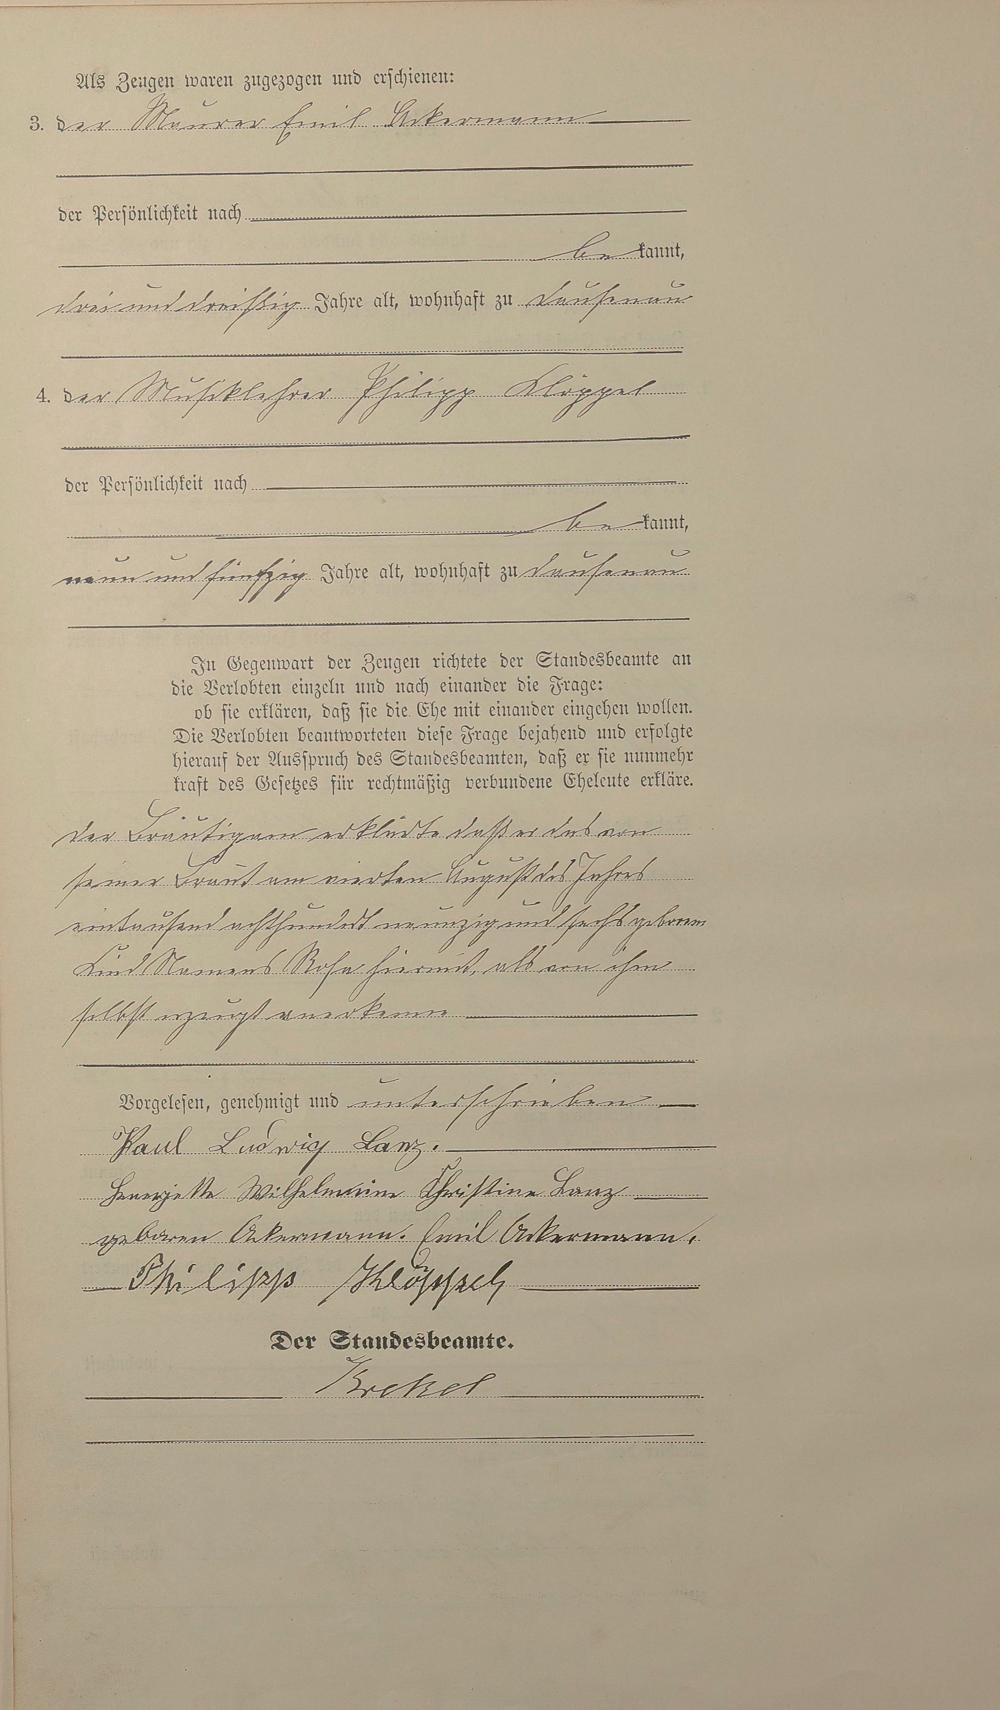 Als Zeugen waren zugezogen und erschienen:
3. der Maurer Emil Ackermann
der Persönlichkeit nach
be kannt,
drei und dreißig Jahre alt, wohnhaft zu Dausenau
4. der Musiklehrer Philipp Klöppel
der Persönlichkeit nach
be kannt,
neun und fünfzig Jahre alt, wohnhaft zu Dausenau
In Gegenwart der Zeugen richtete der Standesbeamte an
die Verlobten einzeln und nach einander die Frage:
ob sie erklären, daß sie die Ehe mit einander eingehen wollen.
Die Verlobten beantworteten diese Frage bejahend und erfolgte
hierauf der Ausspruch des Standesbeamten, daß er sie nunmehr
kraft des Gesetzes für rechtmäßig verbundene Eheleute erkläre.
Der Bräutigam erklärte daß er das von
seiner Braut am vierten August des Jahres
eintausend achthundert neunzig und sechs geborene
Kind Namens Rosa hiermit, als von ihm
selbst erzeugt anerkenne
Vorgelesen, genehmigt und unterschrieben
Paul Ludwig Lanz.
Henrjette Wilhelmine Christine Lanz
geboren Ackermann. Emil Ackermann.
Philipp Klöppel
Der Standesbeamte.
Krekel